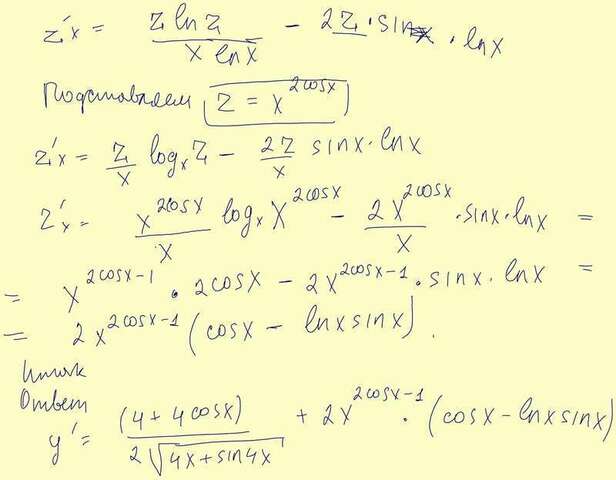 z'x = z ln z / x ln x − 2z · sin x · ln x
Подставляем z = x^(2cosx)
z'x = z/x log_x z − 2z/x sinx · lnx
z'x = x^(2cosx)/x log_x x^(2cosx) − 2x^(2cosx)/x · sinx · lnx =
= x^(2cosx−1) · 2cosx − 2x^(2cosx−1) · sinx · lnx =
= 2x^(2cosx−1) (cosx − lnx sinx).
Итак
Ответ
y' = (4 + 4cosx) / 2√(4x + sin4x) + 2x^(2cosx−1) · (cosx − lnx sinx)